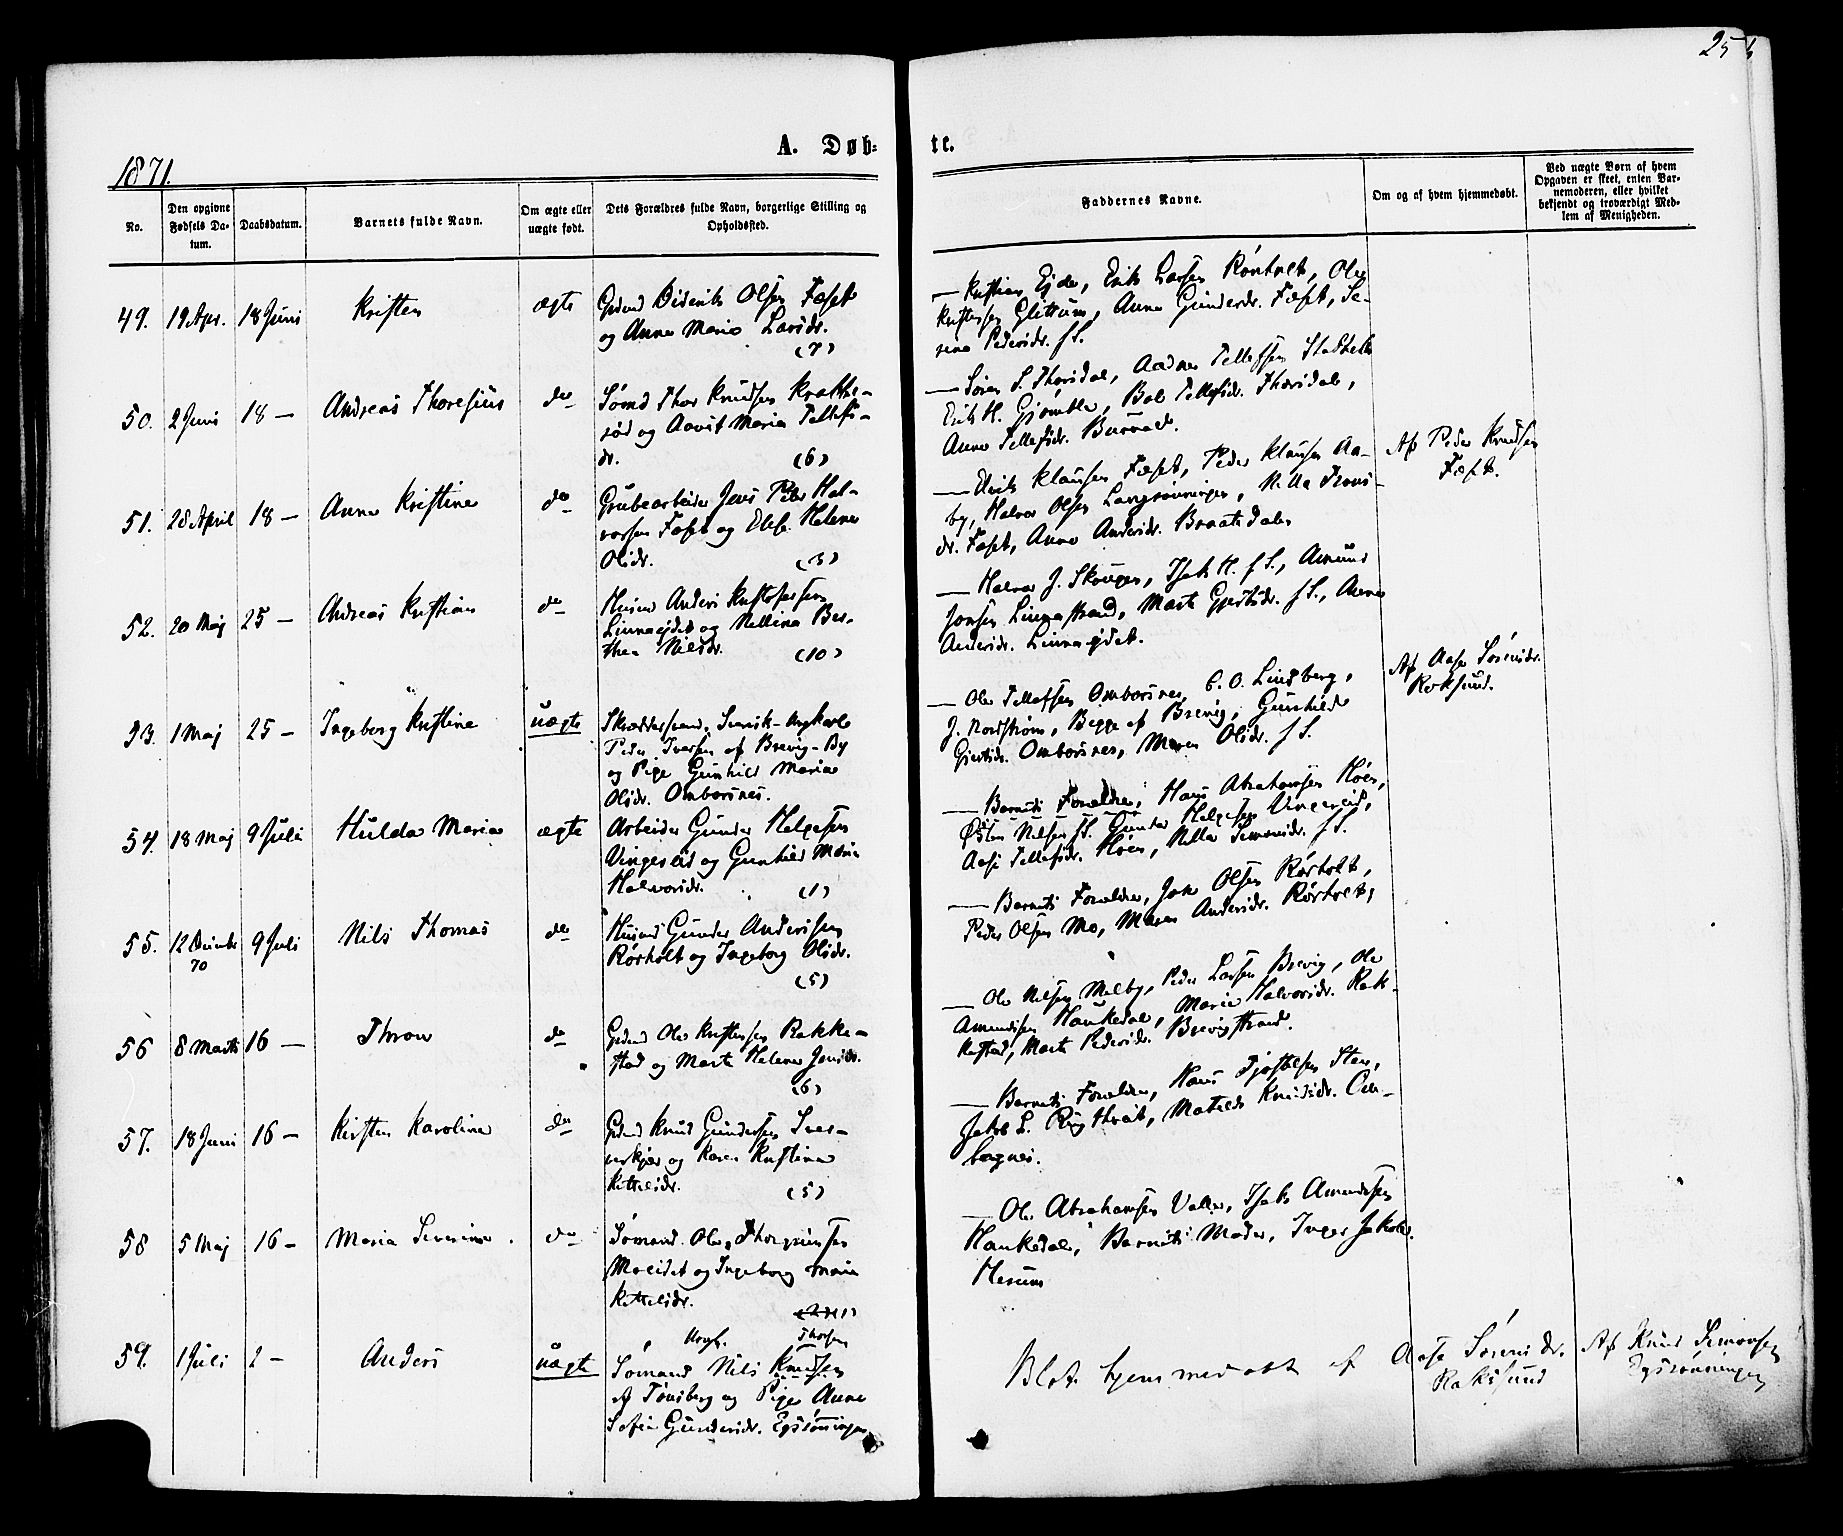 25
1871.
A. Døb-
te.
No.
Den opgivne Fødsels Datum.
Daabsdatum.
Barnets fulde Navn.
Om ægte eller uægte født.
Dets Forældres fulde Navn, borgerlige Stilling og Opholdssted.
Faddernes Navne.
Om og af hvem hjemmedøbt.
Ved uægte Børn af hvem Opgaven er skeet, enten Barnemoderen, eller hvilket bekjendt og troværdigt Medlem af Menigheden.
49. 19 Apr. 18 Juni Kristen ægte
Gdmd Diderik Olsen Fæset
og Anne Maria Larsdr.
(7)
— Kristian Ejder, Erik Larsen Rörholt, Ole
Kristensen Glittum, Anne Gundersdr. Fæset,
Pedersdr. f S.
50. 2 Juni 18 — Andreas Thoresius do
Sömd Thor Knudsen
og Maria Tellefs-
dr. (6)
— Sören S. Thorsdal, Aadne Tellefsen Stadhelle
Erik H. Gjömle, Tellefsdr. Thorsdal,
Anne Tellefsdr.
51. 28 April 18 — Anne Kristine do
Grubearbeider Jens Peter Hal-
vorsen Fæset og Else Helene
Olsdr.
— Erik Klausen Fæset, Peder Klausen Aa-
by, Halvor Olsen Langsönningen,
dr. Fæset, Anne Andersdr. Braatedalen
Af Peder Knudsen
Fæset.
52. 20 Maj 25 — Andreas Kristian do
Husmd Anders Kristofersen
Linnaejdet og Nellina Ber-
thea Nilsdr. (10)
— Halvor J. Skougen, Isak H. f S., Amund
Jonsen Linnestrand, Marte Gjertsdr. f S., Anne
Andersdr. Linnaejdet.
53. 1 Maj 25 — Ingeborg Kristine uægte
Skræddersvend, Svensk
Peder Iversen af Brevig-By
og Pige Gunhild Marie
Olsdr. Omborsnes.
— Ole Tellefsen Omborsnes, C. O. Lindberg,
J. Nordström, Begge af Brevig, Gunhild
Gjertsdr. Omborsnes, Maren Olsdr. f S.
Af Aase Sörensdr.
Roksund.
54. 18 Maj 9 Juli Hulda Marie ægte
Arbeider Gunder Helgesen
Vingereid og Gunhild Marie
Halvorsdr. (1)
— Barnets Forældre, Hans Abrahamsen Höen,
Østen Nilsen f S. Gunder Helgesen Vingereid,
Aase Tellefsdr. Höen, Simonsdr. f S.
55. 12 Decembr 70 9 Juli Nils Thomas do
Husmd Gunder Andersen
Rörholt og Ingeborg Olsdr.
(5)
— Barnets Forældre, Jon Olsen Rörholt,
Peder Olsen Mo, Maren Andersdr. Rörholt,
56 8 Marts 16 — Thron do
Gdmd Ole Kristensen Rakke-
stad og Marte Helene Jensdr.
(6)
— Ole Nilsen Melby, Peder Larsen Brevig, Ole
Amundsen Haukedal, Marie Halvorsdr. Rak-
kestad, Marte Pedersdr. Brevigstrand.
57. 18 Juni 16 — Kirsten Karoline do
Gdmd Knud Gundersen
og Karen Kristine
Kittelsdr. (5)
— Barnets Forældre, Hans Tjostelsen Sten,
Jakob L. Matilde Knudsdr.
58 5 Maj 16 — Maria Severine do
Sömand Ole Thorgrimsen
Moeidet og Ingeborg Marie
Kittelsdr.
— Ole Abrahamsen Valle, Isak Amundsen
Haukedal, Barnets Moder, Inger Jakobs.
Hesum
59. 1 Juli 2 — Anders uægte
Ungk. Thorsen
Sömand Nils Knudsen
af Tönsberg og Pige Anne
Sofie Gundersdr. Eyssönningen
Blot hjemmedöbt af Aase Sörensdr.
Roksund
Af Knud Simonsen
Eyssönningen